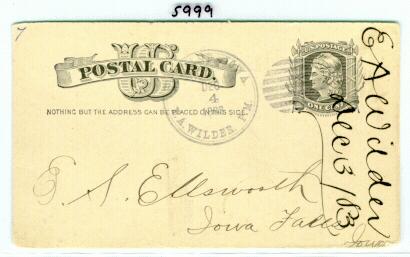 5999
7
U.S. POSTAGE
US
POSTAL CARD.
NOTHING BUT THE ADDRESS CAN BE PLACED ON THIS SIDE.
DEC
4
A. WILDER, P.M.
ONE CENT
E. S. Ellsworth
Iowa Falls
Iowa
E A Wilder
Dec 3/83